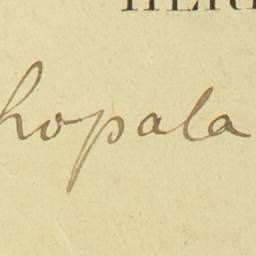 HER
hopala